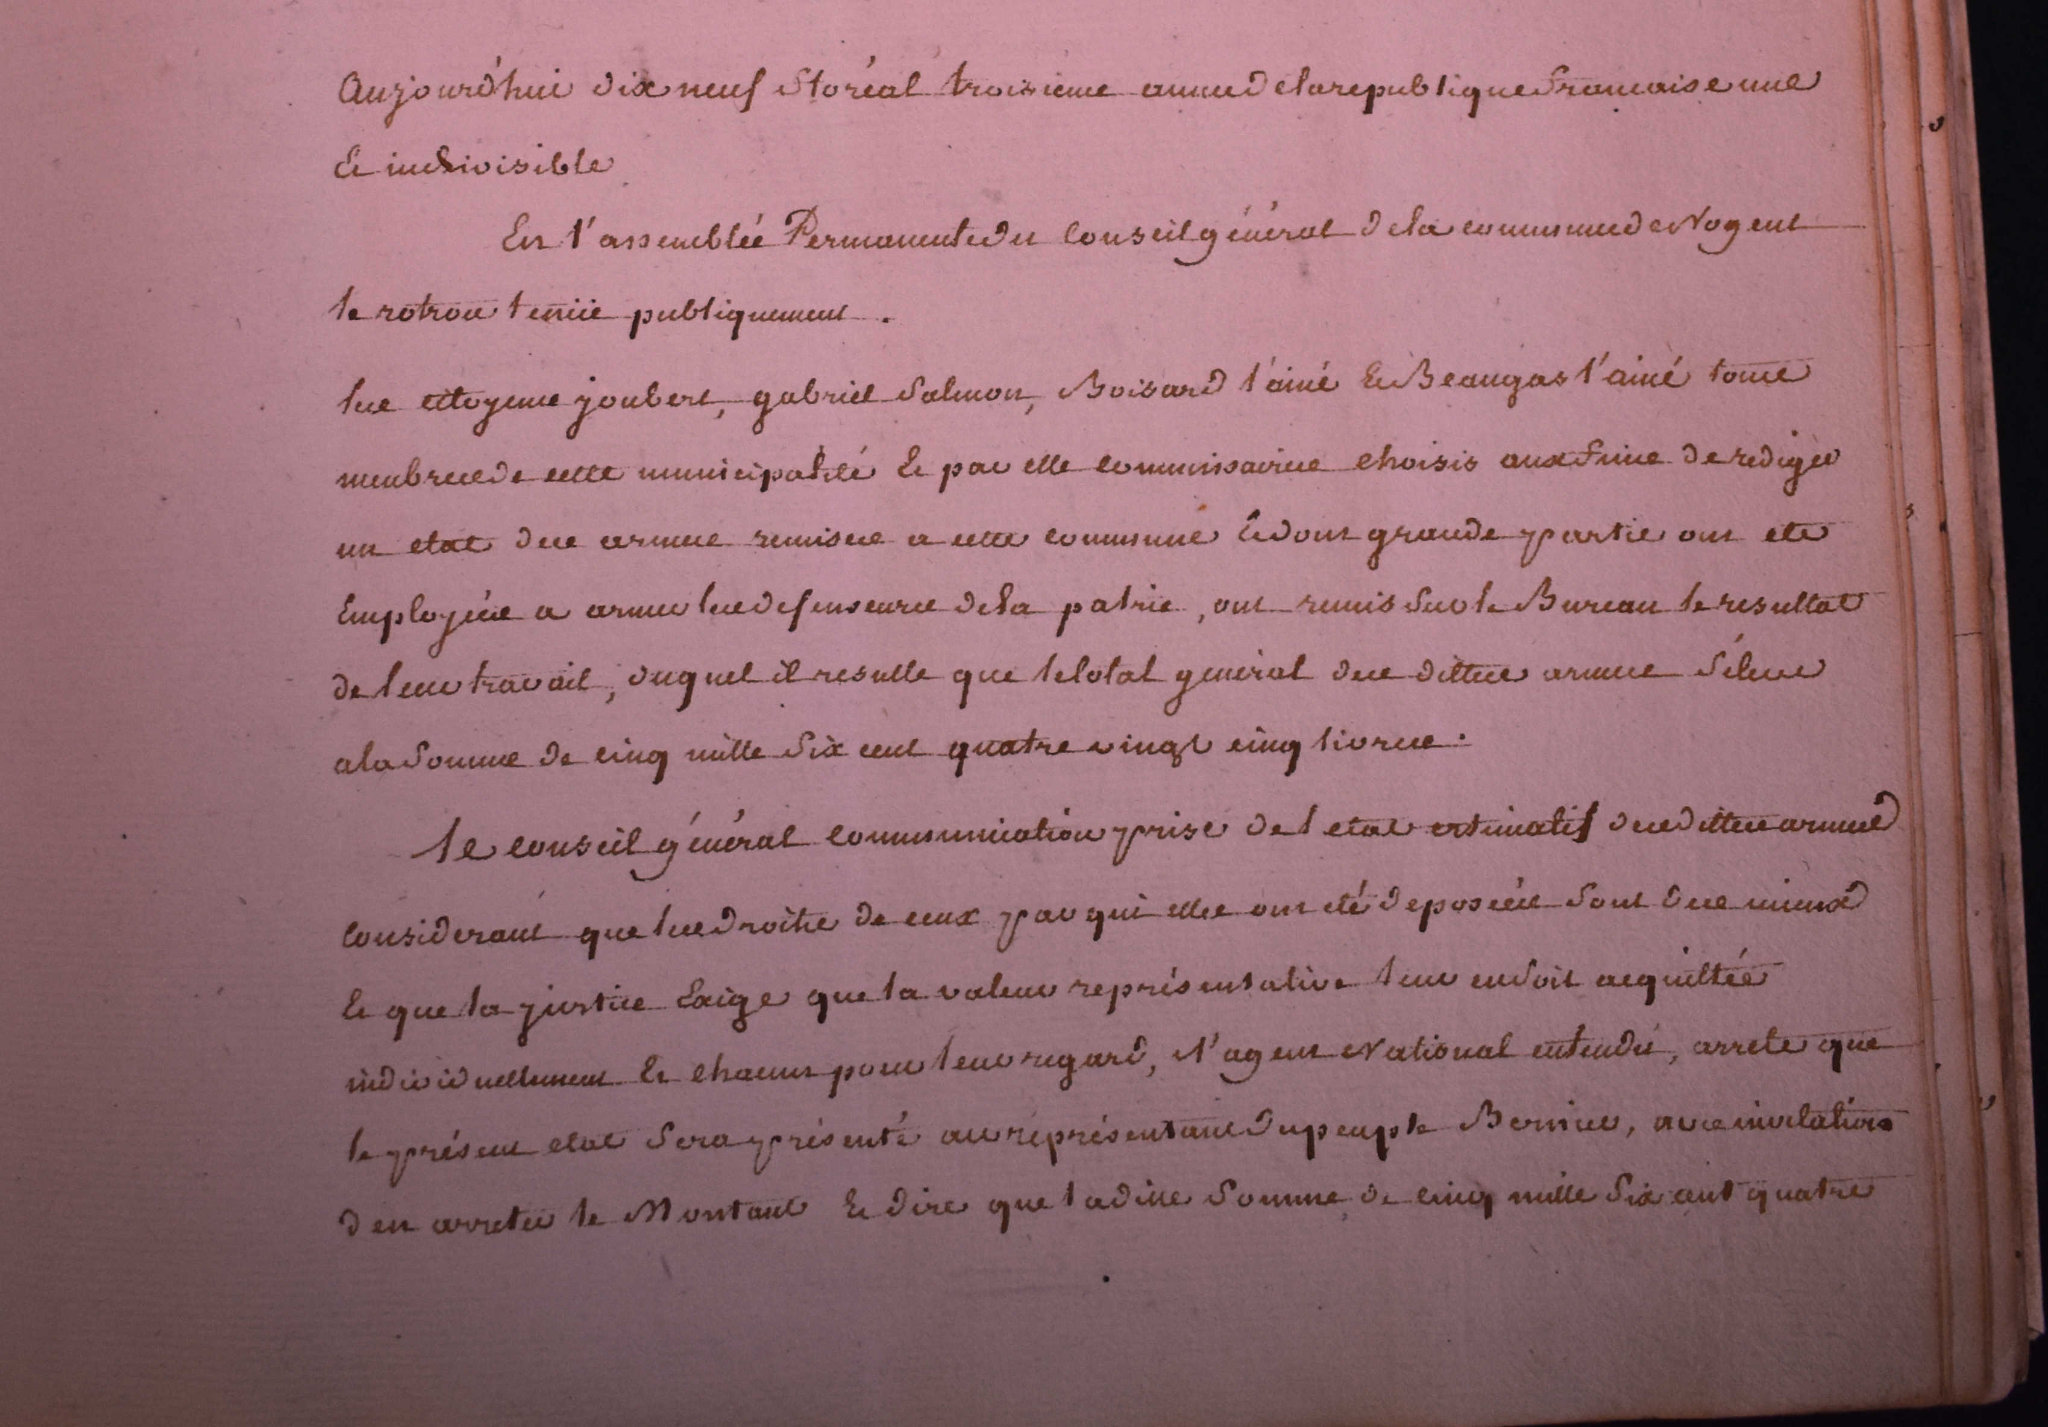 Aujourd'hui dix neuf floréal troisieme année de la republique francaise une
Et indivisible
En l'assemblée Permanente du Conseil général de la commune de Nogent
le rotrou tenüe publiquement.
les citoyens joubert, gabriel Salmon, Boisard l'ainé Et Beaugas l'ainé tous
membres de cette municipalité Et par elle commissaires choisis aux fins de rediger
un etat des armes remises a cette commune Et dont grande partie ont ete
Employées a armer les defenseurs de la patrie, ont remis sur le Bureau le resultat
de leur travail, duquel il resulte que le total général des dittes armes s'éleve
a la Somme de cinq mille Six cent quatre vingt cinq livres.
le conseil général communication prise de l'etat estimatif des dittes armes
Considerant que les droits de ceux par qui elles ont été deposées sont des mieux
Et que la justice Exige que la valeur représentative leur en soit acquittée
individuellement Et chacun pour leur regard, L'agent National entendu, arrete que
le présent etat Sera présenté au représentant du peuple Bernier, avec invitation
d'en arreter le Montant Et dire que la ditte Somme de cinq mille Six cent quatre